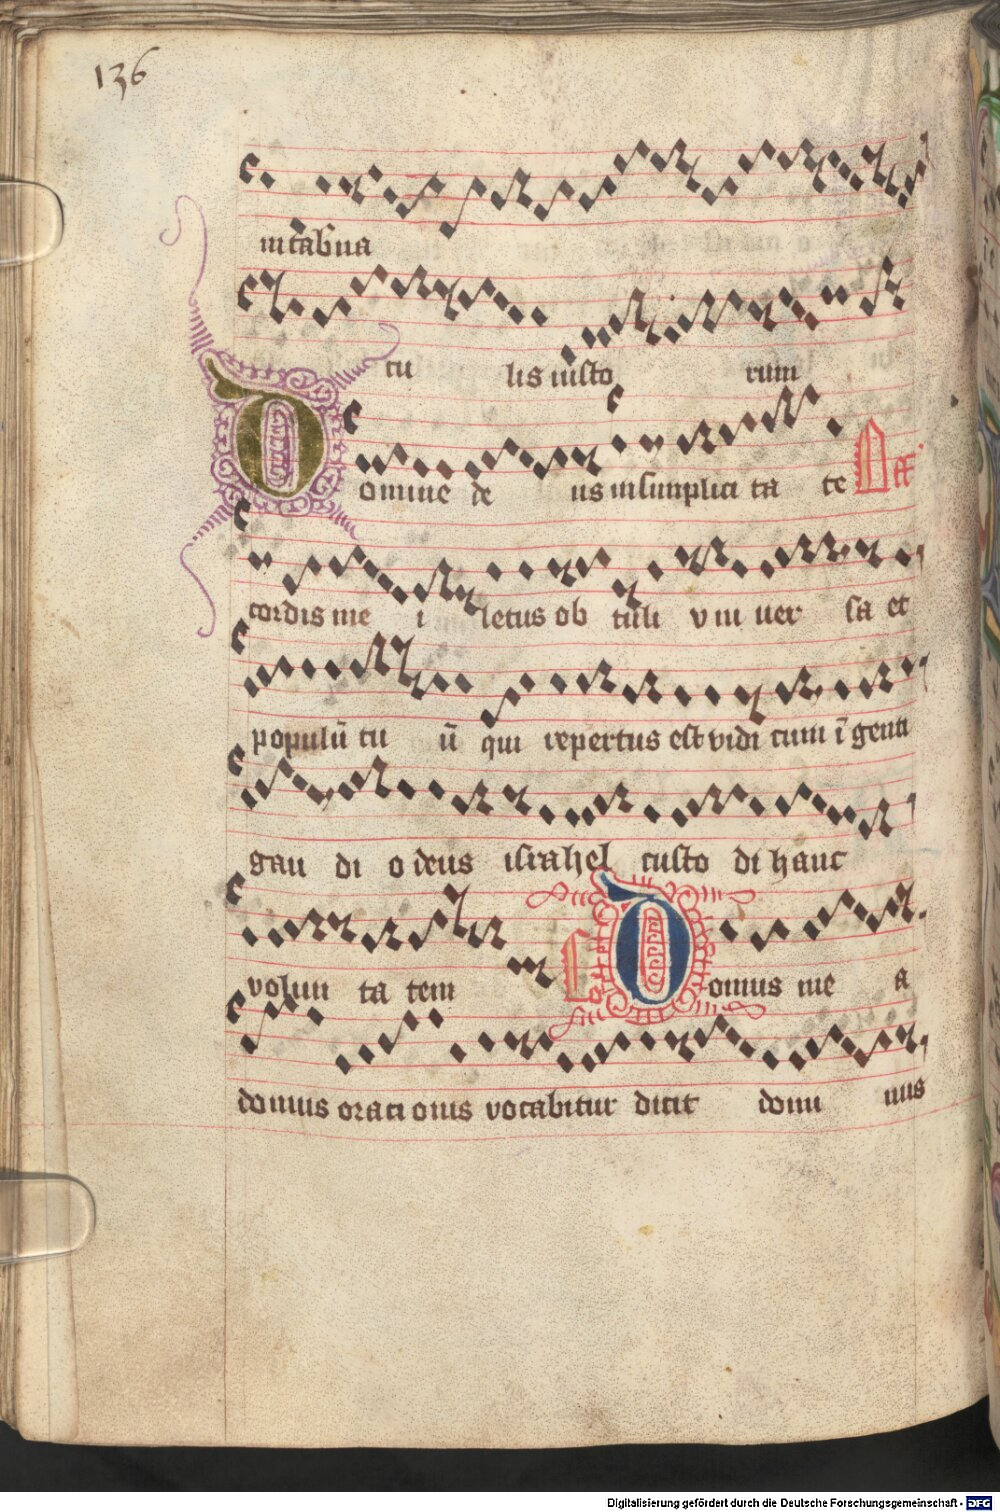 136
in tab̄na
cu lis iusto rum
Domine de us in simplici ta te Off
cordis me i letus ob tuli vni uer sa et
populū tu ū qui repertus est vidi cum ī genti
gau di o deus israhel custo di hanc
volun ta tem Co Domus me a
domus oracionis vocabitur dicit domi nus
Digitalisierung gefördert durch die Deutsche Forschungsgemeinschaft - DFG